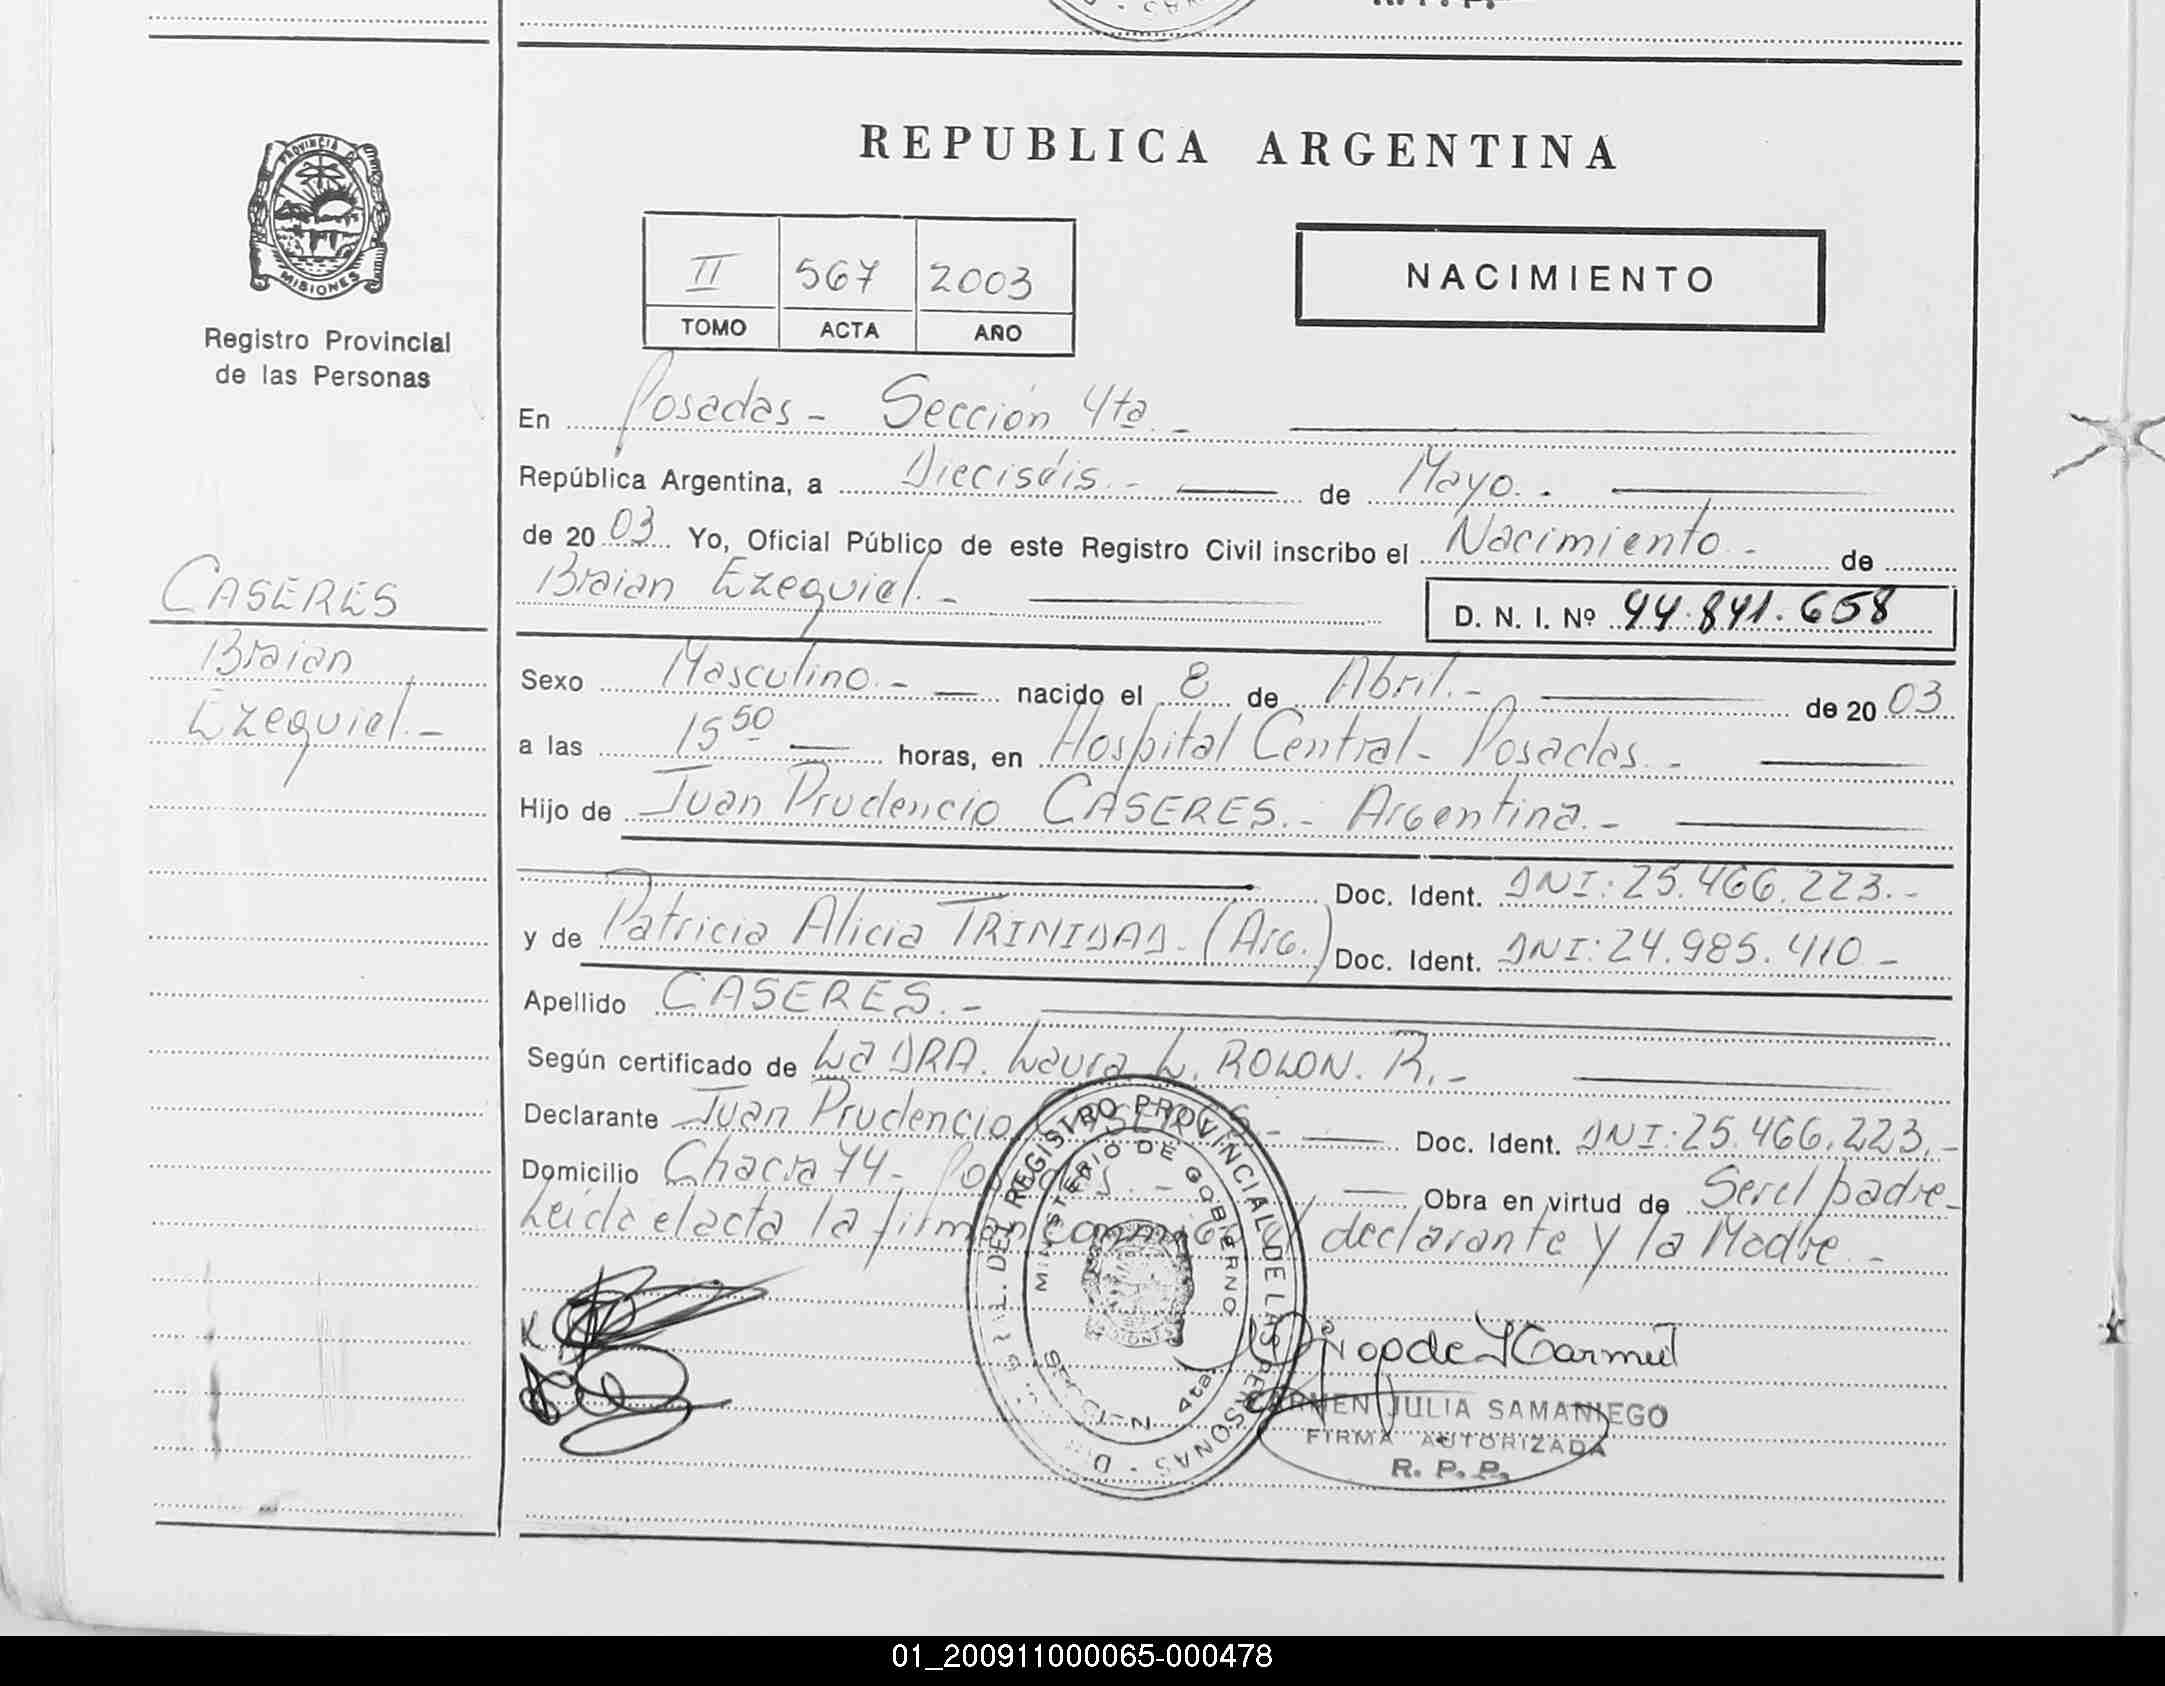 R. P. P.
PROVINCIA DE
MISIONES
Registro Provincial
de las Personas
CASERES
Braian
Ezequiel.-
REPUBLICA ARGENTINA
II 567 2003
TOMO ACTA AÑO
NACIMIENTO
En Posadas - Sección 4ta.-
República Argentina, a Dieciséis.- de Mayo.-
de 2003 Yo, Oficial Público de este Registro Civil inscribo el Nacimiento.- de
Braian Ezequiel.-
D. N. I. Nº 44.841.658
Sexo Masculino.- nacido el 8 de Abril.- de 2003
a las 15 50 horas, en Hospital Central - Posadas.-
Hijo de Juan Prudencio CASERES.- Argentina.-
Doc. Ident. DNI: 25.466.223.-
y de Patricia Alicia TRINIDAD.- (Arg.) Doc. Ident. DNI: 24.985.410 -
Apellido CASERES.-
Según certificado de La DRA. Laura L. ROLON. R.-
Declarante Juan Prudencio CASERES.- Doc. Ident. DNI: 25.466.223.-
Domicilio Chacra 74 - Posadas.- Obra en virtud de Ser el padre -
Leida el acta la firman conmigo el declarante y la Madre.-
REGISTRO PROVINCIAL DE LAS PERSONAS
MINISTERIO DE GOBIERNO
SECCION 4ta
MISIONES
CARMEN JULIA SAMANIEGO
FIRMA AUTORIZADA
R. P. P.
01_200911000065-000478